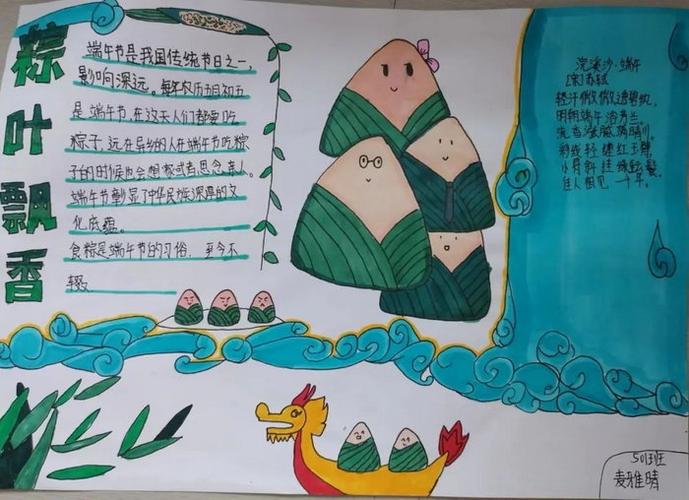 粽叶飘香
端午节是我国传统节日之一,
影响深远。每年农历五月初五
是端午节,在这天人们都要吃
粽子,远在异乡的人在端午节吃粽
子的时候也会想家或者思念亲人。
端午节彰显了中华民族深厚的文
化底蕴。
食粽是端午节日的习俗.至今不
辍
浣溪沙·端午
[宋]苏轼
轻汗微微透碧纨,
明朝端午浴芳兰。
流香涨腻满晴川。
彩线轻缠红玉臂,
小符斜挂绿云鬟。
佳人相见一千年。
501班
麦雅晴